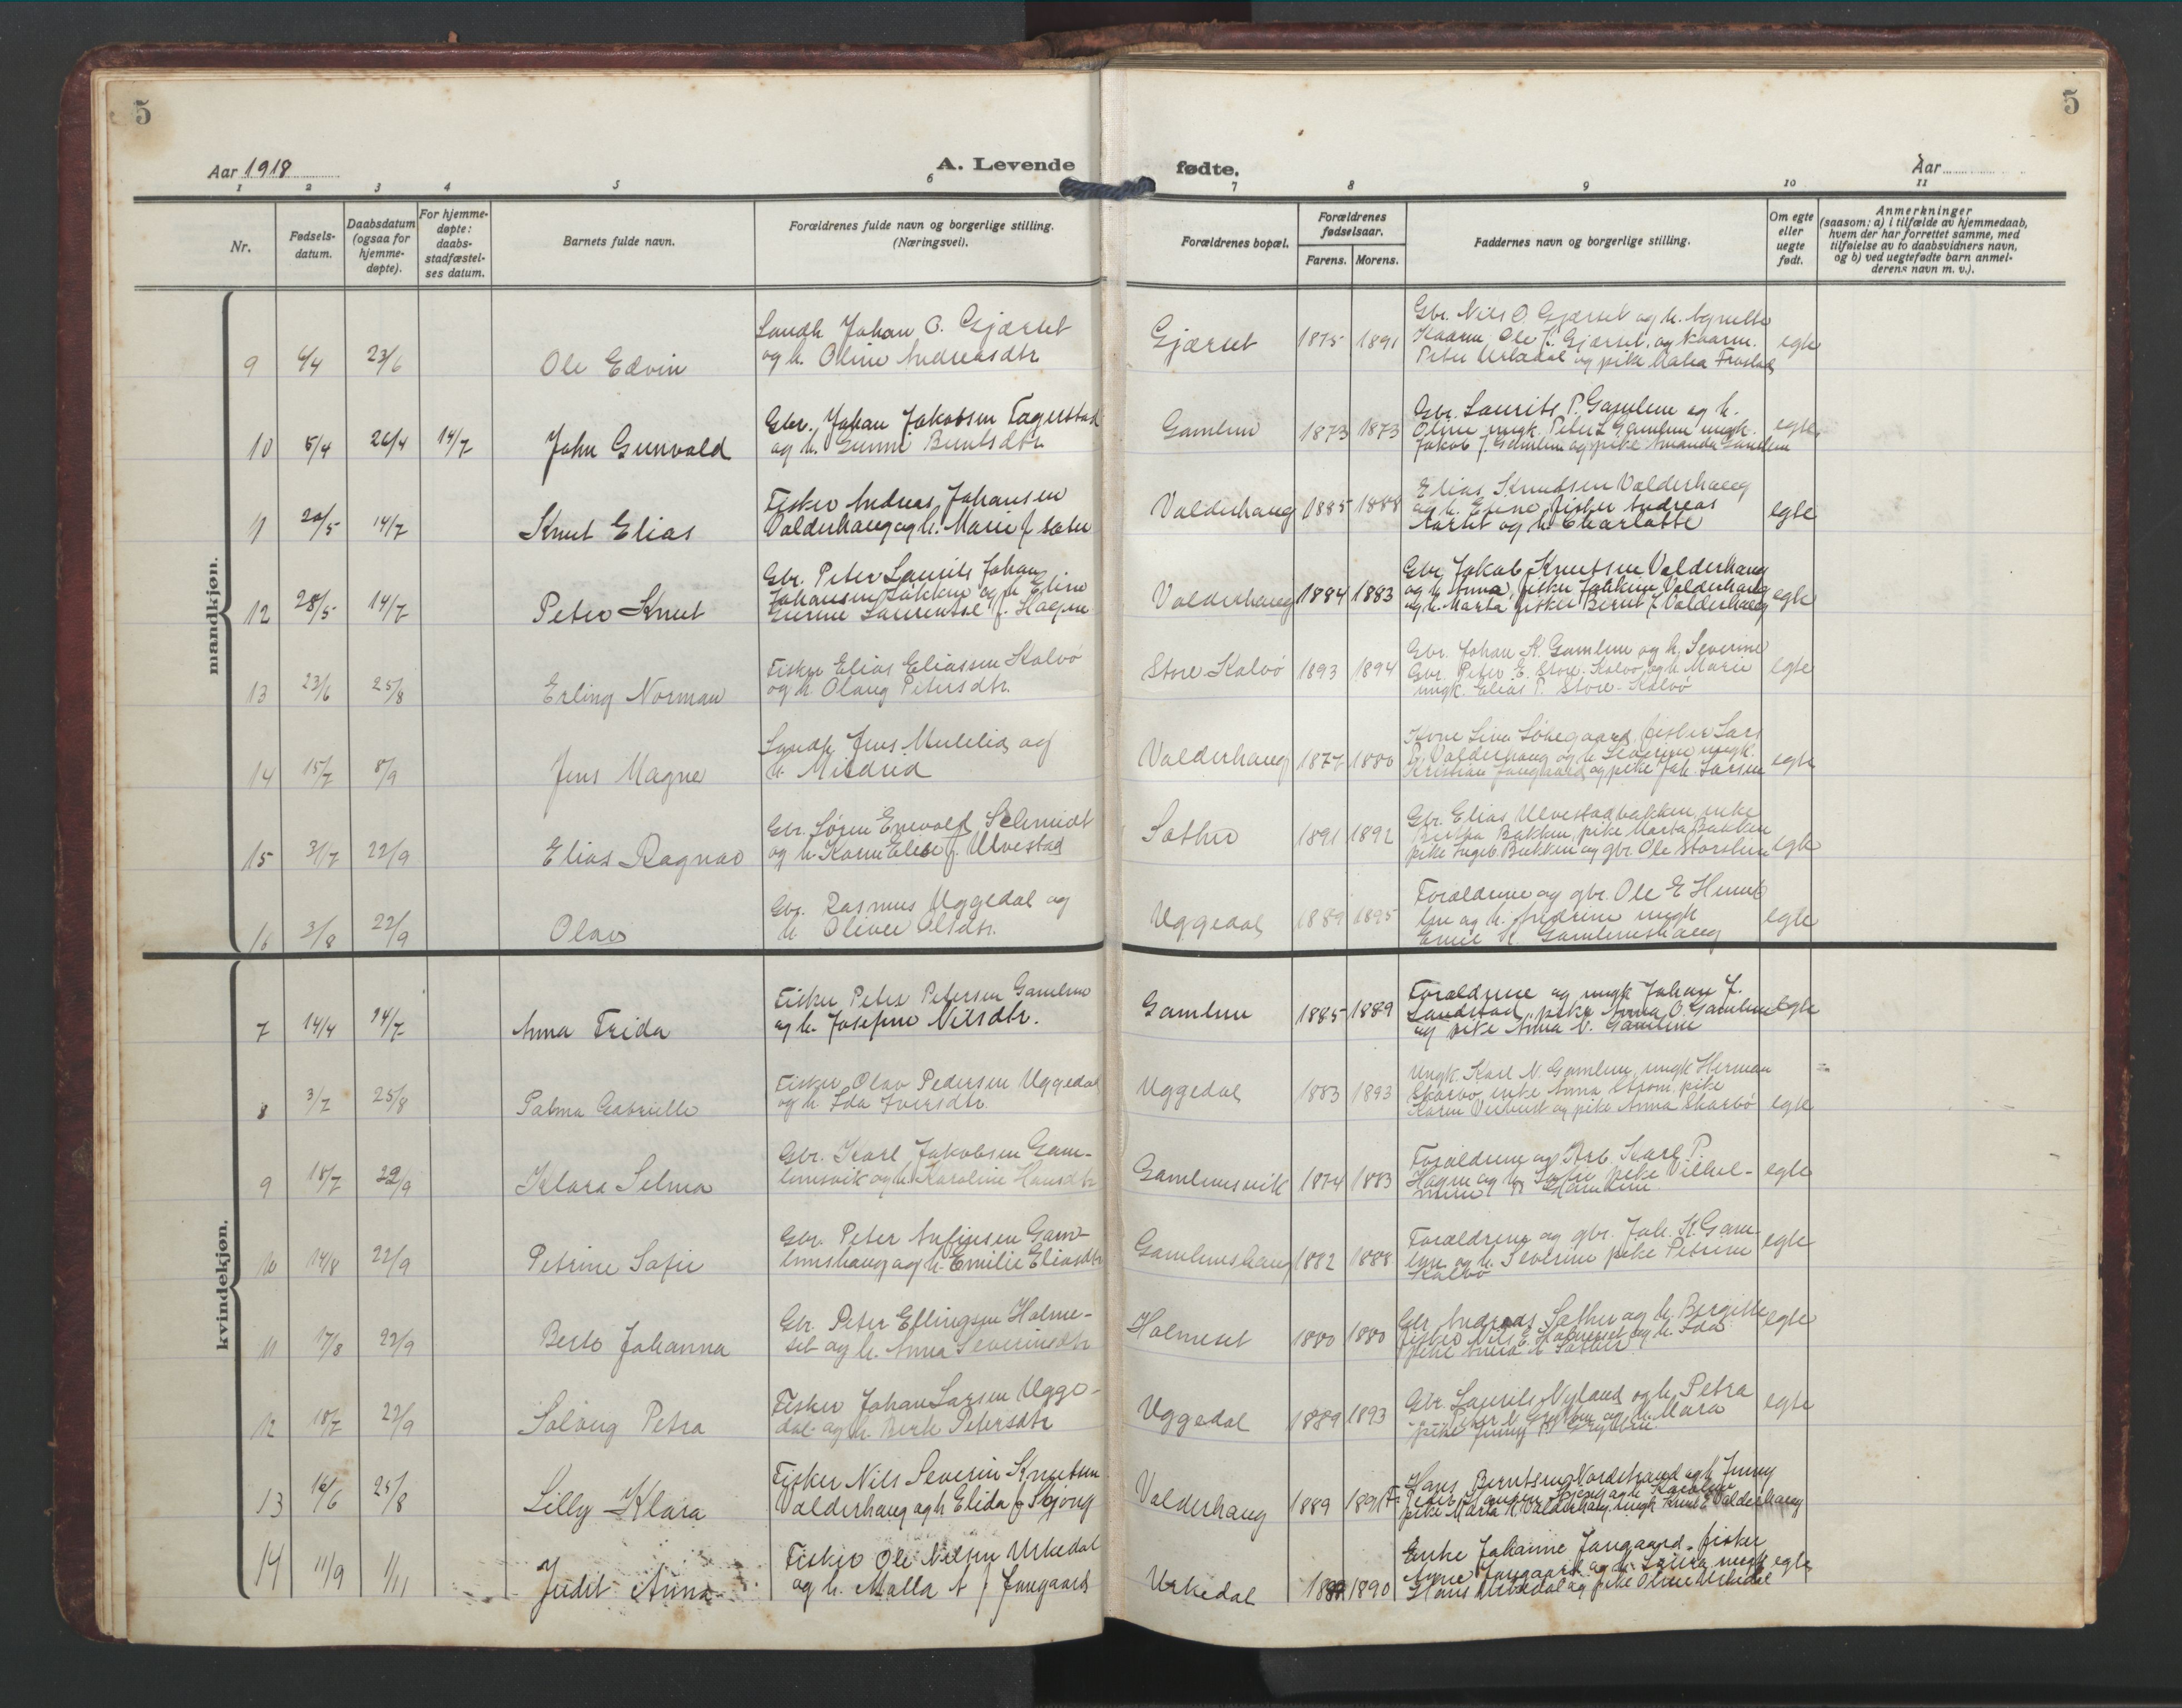 5
5
Aar 1918
A. Levende
fødte.
Aar
1 2 3 4 5 6 7 8 9 10 11
Nr.
Fødsels-
datum.
Daabsdatum
(ogsaa for
hjemme-
døpte).
For hjemme-
døpte:
daabs-
stadfæstel-
ses datum.
Barnets fulde navn.
Forældrenes fulde navn og borgerlige stilling.
(Næringsvei).
Forældrenes bopæl.
Forældrenes
fødselsaar.
Farens. Morens.
Faddernes navn og borgerlige stilling.
Om egte
eller
uegte
født.
Anmerkninger
(saasom: a) i tilfælde av hjemmedaab,
hvem der har forrettet samme, med
tilføielse av to daabsvidners navn,
og b) ved uegtefødte barn anmel-
derens navn m. v.).
mandkjøn.
9 4/4 23/6 Ole Edvin
Landh. Johan O. Gjærset
og h. Oline Andreasdtr
Gjærset 1875 1891
Gbr. Nils O Gjærset og h.
Ole J. Gjærset, og
Peter Urkedal og pike Frostad
egte
10 5/4 26/4 14/7 John Gunvald
Gbr. Johan Jakobsen Fagerstad
og h. Gunne Berntsdtr
Gamlem 1873 1873
Gbr. Laurits P. Gamlem og h.
Oline ungk. Peter L Gamlem ungk.
Jakob J. Gamlem og pike Amanda Gamlem
egte
11 20/5 14/7 Knut Elias
Fisker Andreas Johansen
Valderhaug og h. Marie f. Sæter
Valderhaug 1885 1888
Elias Knudsen Valderhaug
og h. fisker Andreas
og h. Charlotte
egte
12 28/5 14/7 Peter Knut
Gbr. Peter Laurits Johan
Johansen Løkken og h. Eline
Laurentse f. Hagen
Valderhaug 1884 1883
Gbr. Jakob Knutsen Valderhaug
og h. Anna, fisker Valderhaug
og h. Marta fisker Bernt J. Valderhaug
egte
13 23/6 25/8 Erling Norman
Fisker Elias Eliassen Kalvø
og h. Olaug Petersdtr.
Store Kalvø 1893 1894
Gbr. Johan K. Gamlem og h. Severine
Gbr. Peter E. Store-Kalvø, og h. Marie
ungk. Elias P. Store-Kalvø
egte
14 15/7 8/9 Jens Magne
Landh. Jens og
h. Mildrid
Valderhaug 1877 1880
Kone Lina Løkegaard, fisker Lars
P. Valderhaug og h. Severine ungk.
Kristian Jangaard og pike Joh. Larsen
egte
15 3/7 22/9 Elias Ragnar
Gbr. Søren Enevold Schmidt
og h. Karen Elise f. Ulvestad
Sæther 1891 1892
Gbr. Elias Ulvestadbakken, enke
Bertha Bakken, pike Marta Bakken
pike Ingeb. Bakken og gbr. Ole
egte
16 3/8 22/9 Olav
Gbr. Rasmus Uggedal og
h. Oliver Olsdtr.
Uggedal 1889 1895
Forældrene og gbr. Ole E
og h. ungk
Emil K. Gamlemshaug
egte
kvindekjøn.
7 14/4 14/7 Anna Frida
Fisker Peter Petersen Gamlem
og h. Josefine Nilsdtr.
Gamlem 1885 1889
Forældrene og ungk Johan J.
Sandstad, pike Anna O. Gamlem
og pike Anna N. Gamlem
egte
8 3/7 25/8 Palma Gabrielle
Fisker Olav Pedersen Uggedal
og h. Ida Iversdtr.
Uggedal 1883 1893
Ungk. Karl N. Gamlem, ungk Herman
Skarbø, enke Anna Strøm, pike
Karen og pike Anna Skarbø
egte
9 18/7 22/9 Klara Selma
Gbr. Karl Jakobsen Gam-
lemsvik og h. Karoline Hansdtr
Gamlemsvik 1874 1883
Forældrene og Arb. Karl P.
Hagen og h. Sofie pike Vilhel-
mine Gamlem
egte
10 14/8 22/9 Petrine Sofie
Gbr. Peter Anfinsen Gam-
lemshaug og h. Emilie Eliasdtr
Gamlemshaug 1882 1888
Forældrene og gbr. Joh. K. Gam-
lem og h. Severine pike Petrine
Kalvø
egte
11 17/8 22/9 Johanna
Gbr. Peter Ellingsen Holme-
set og h. Anna Severinsdtr
Holmeset 1880 1880
Gbr Andreas Sæther og h. Bergitte
fisker Nils E. Holmeset og h. Ida
pike Anna Sæther
egte
12 18/7 22/9 Solveig Petra
Fisker Johan Larsen Ugge-
dal og h. Berte Petersdtr
Uggedal 1889 1893
Gbr. Laurits Nyland og h. Petra
Peter og h. Mara
pike Jenny
egte
13 16/6 25/8 Lilly Klara
Fisker Nils Severin Knutsen
Valderhaug og h Elida f Skjong
Valderhaug 1889 1891
Hans Berntsen Nordstrand og h Jenny
Peder Hansen Skjong og h Karoline
pike Marta K Valderhaug ungk Knut E Valderhaug
14 11/9 1/11 Judit Anna
Fisker Ole Nilsen Urkedal
og h. Malla A f Jangaard
Urkedal 1890
Enke Johanne Jangaard, fisker
Jangaard og h. Laura ungk
Hans Urkedal og pike Oline Urkedal
egte